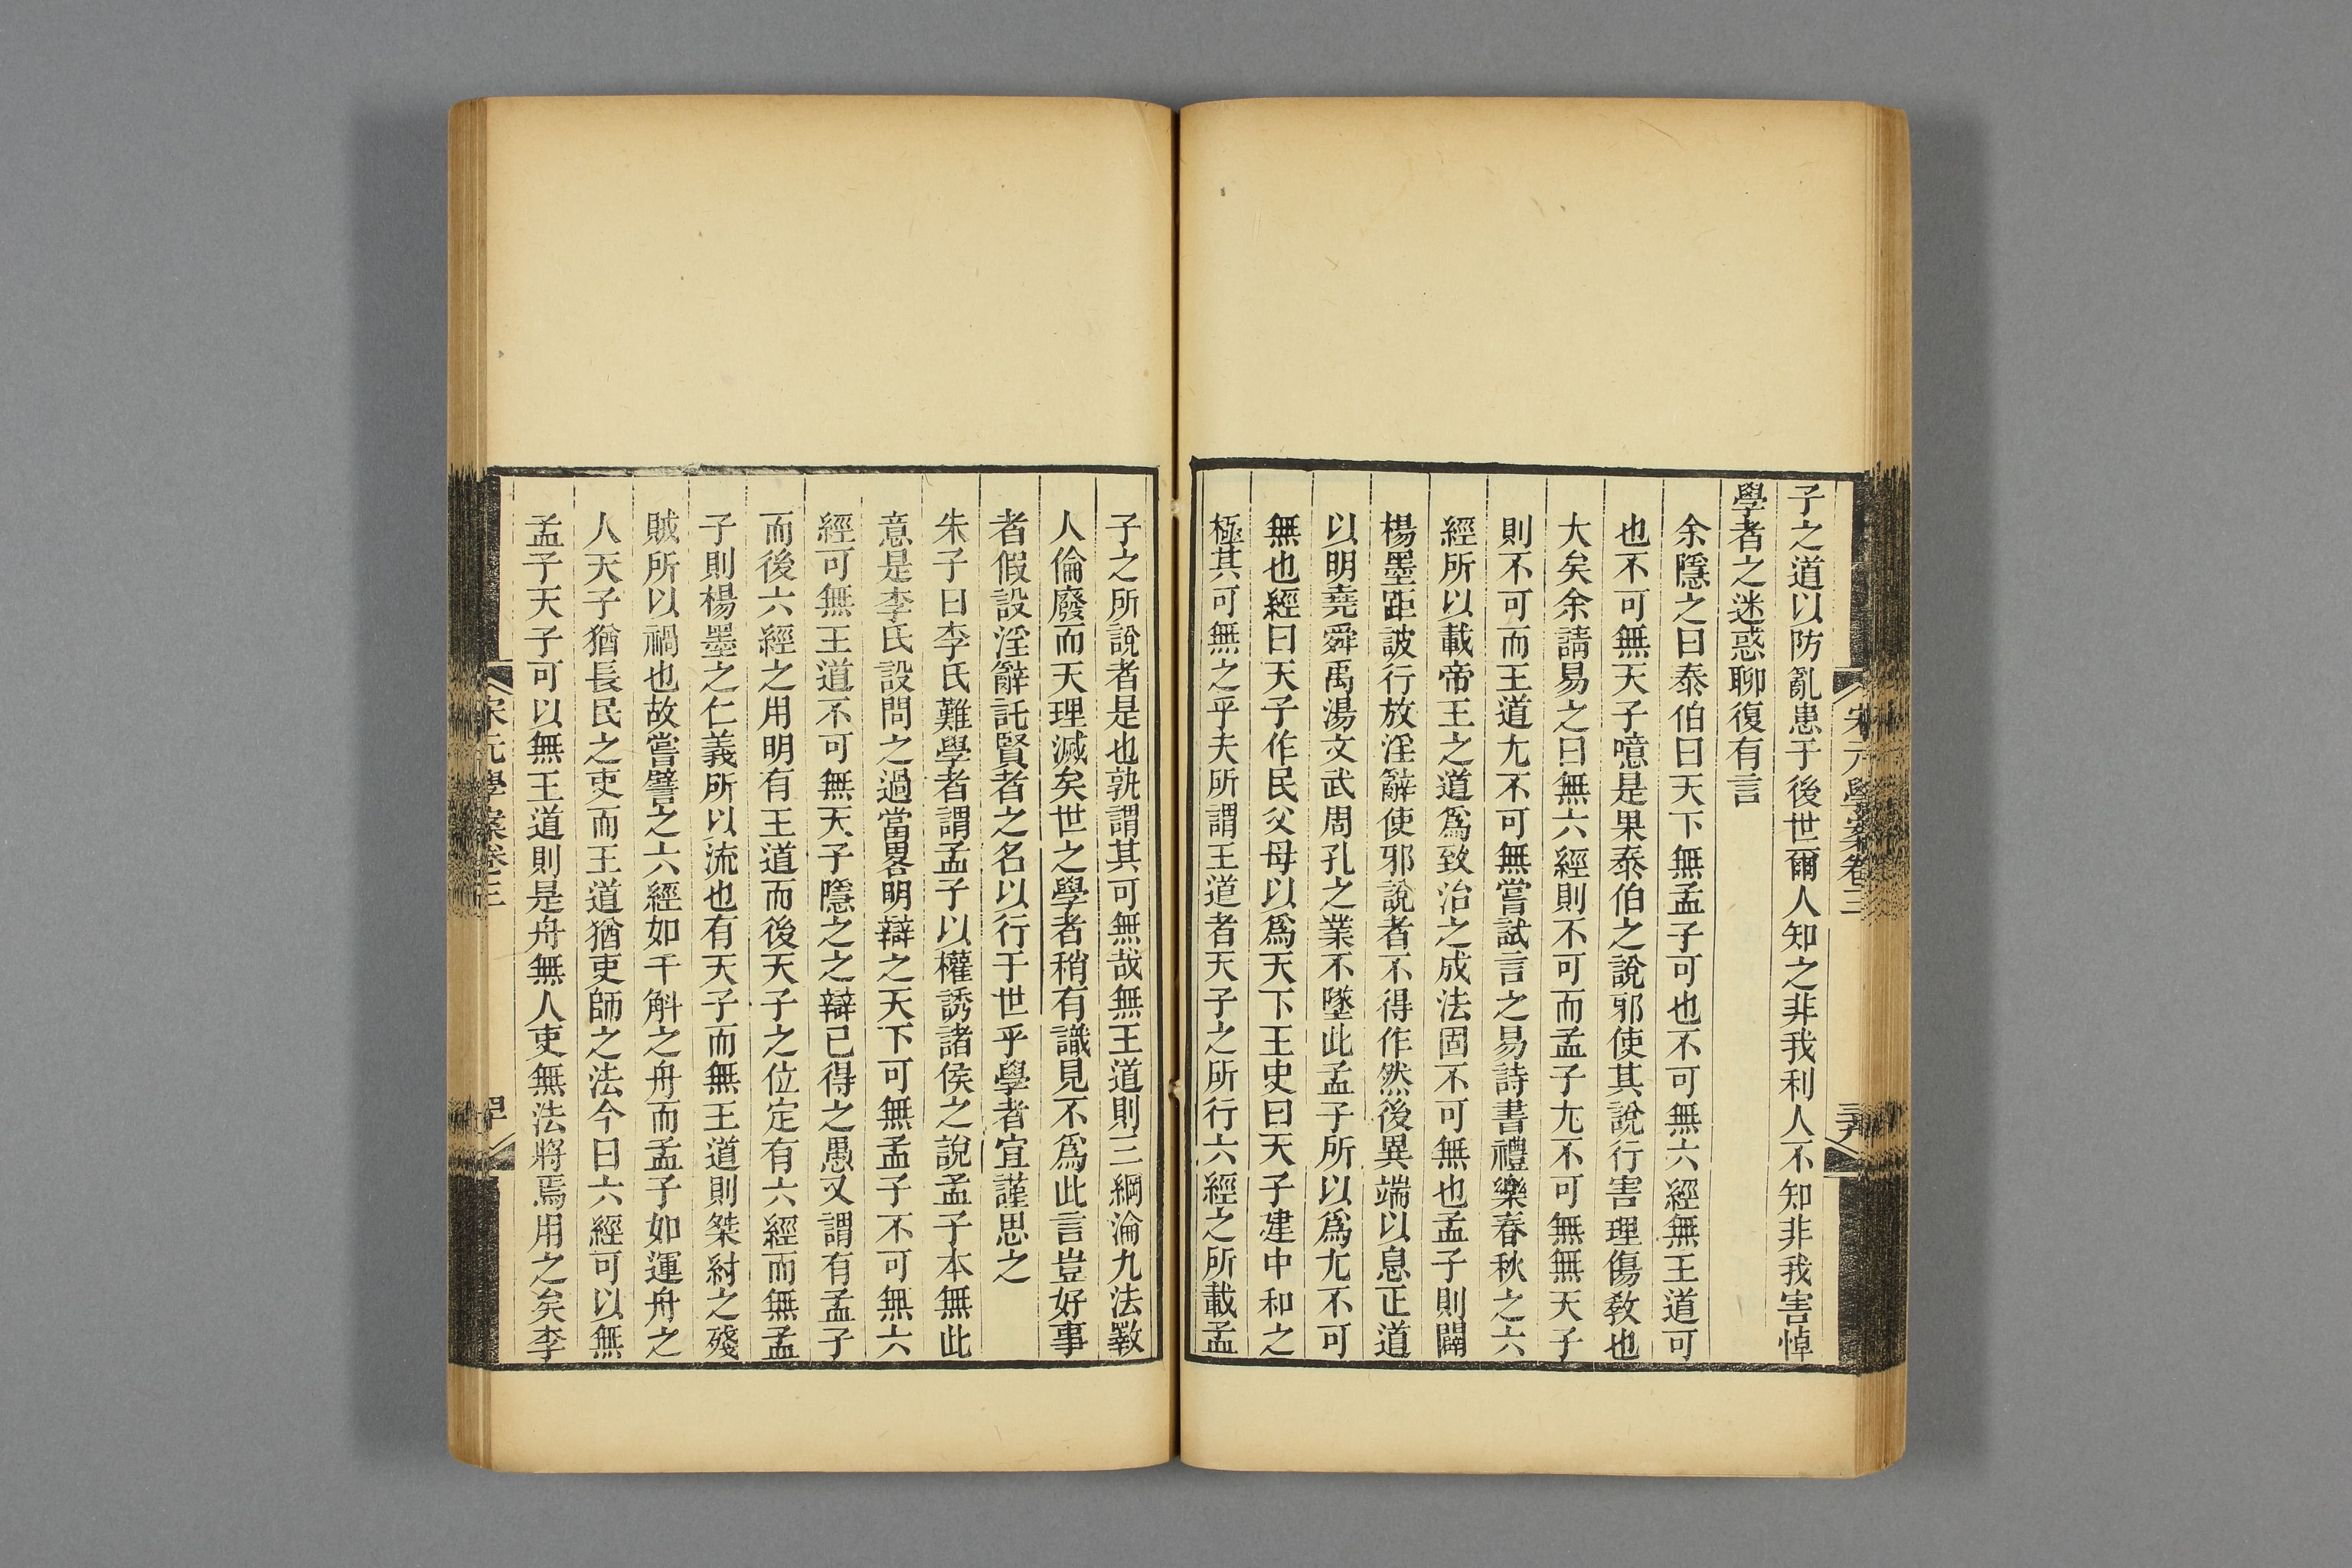 子之道以防亂患于後世爾人知之非我利人不知非我害悼
學者之迷惑聊復有言
余隱之曰泰伯曰天下無孟子可也不可無六經無王道可
也不可無天子噫是果泰伯之說邪使其說行害理傷敎也
大矣余請易之曰無六經則不可而孟子尢不可無無天子
則不可而王道尢不可無嘗試言之易詩書禮樂春秋之六
經所以載帝王之道爲致治之成法固不可無也孟子則闢
楊墨距詖行放淫辭使邪說者不得作然後異端以息正道
以明堯舜禹湯文武周孔之業不墜此孟子所以爲尢不可
無也經曰天子作民父母以爲天下王史曰天子建中和之
極其可無之乎夫所謂王道者天子之所行六經之所載孟
子之所說者是也孰謂其可無哉無王道則三綱淪九法斁
人倫廢而天理滅矣世之學者稍有識見不爲此言豈好事
者假設淫辭託賢者之名以行于世乎學者宜謹思之
朱子曰李氏難學者謂孟子以權誘諸侯之說孟子本無此
意是李氏設問之過當畧明辯之天下可無孟子不可無六
經可無王道不可無天子隱之之辯已得之愚又謂有孟子
而後六經之用明有王道而後天子之位定有六經而無孟
子則楊墨之仁義所以流也有天子而無王道則桀紂之殘
賊所以禍也故嘗譬之六經如千斛之舟而孟子如運舟之
人天子猶長民之吏而王道猶吏師之法今曰六經可以無
孟子天子可以無王道則是舟無人吏無法將焉用之矣李
宋元學案卷三